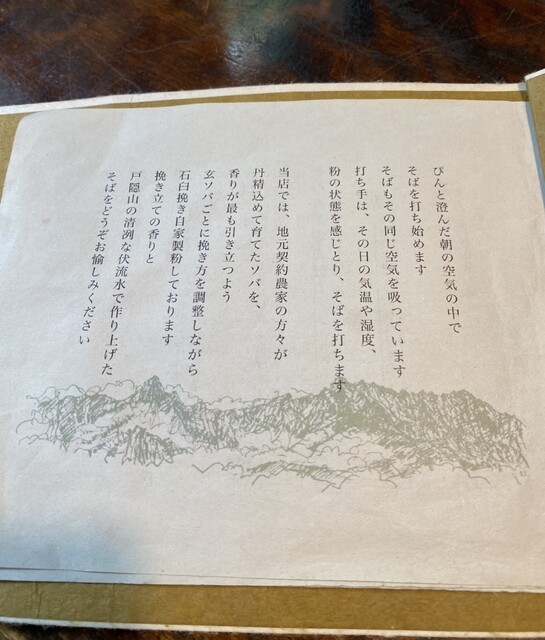 ぴんと澄んだ朝の空気の中で
そばを打ち始めます
そばもその同じ空気を吸っています
打ち手は、その日の気温や湿度、
粉の状態を感じとり、そばを打ちます
当店では、地元契約農家の方々が
丹精込めて育てたソバを、
香りが最も引き立つよう
玄ソバごとに挽き方を調整しながら
石臼挽き自家製粉しております
挽き立ての香りと
戸隠山の清冽な伏流水で作り上げた
そばをどうぞお愉しみください